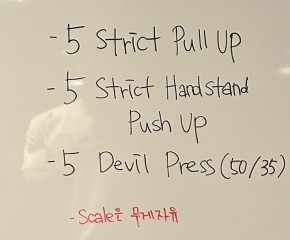 - 5 Strict Pull Up
- 5 Strict Handstand
Push Up
- 5 Devil Press (50/35)
- Scale은 무게자유